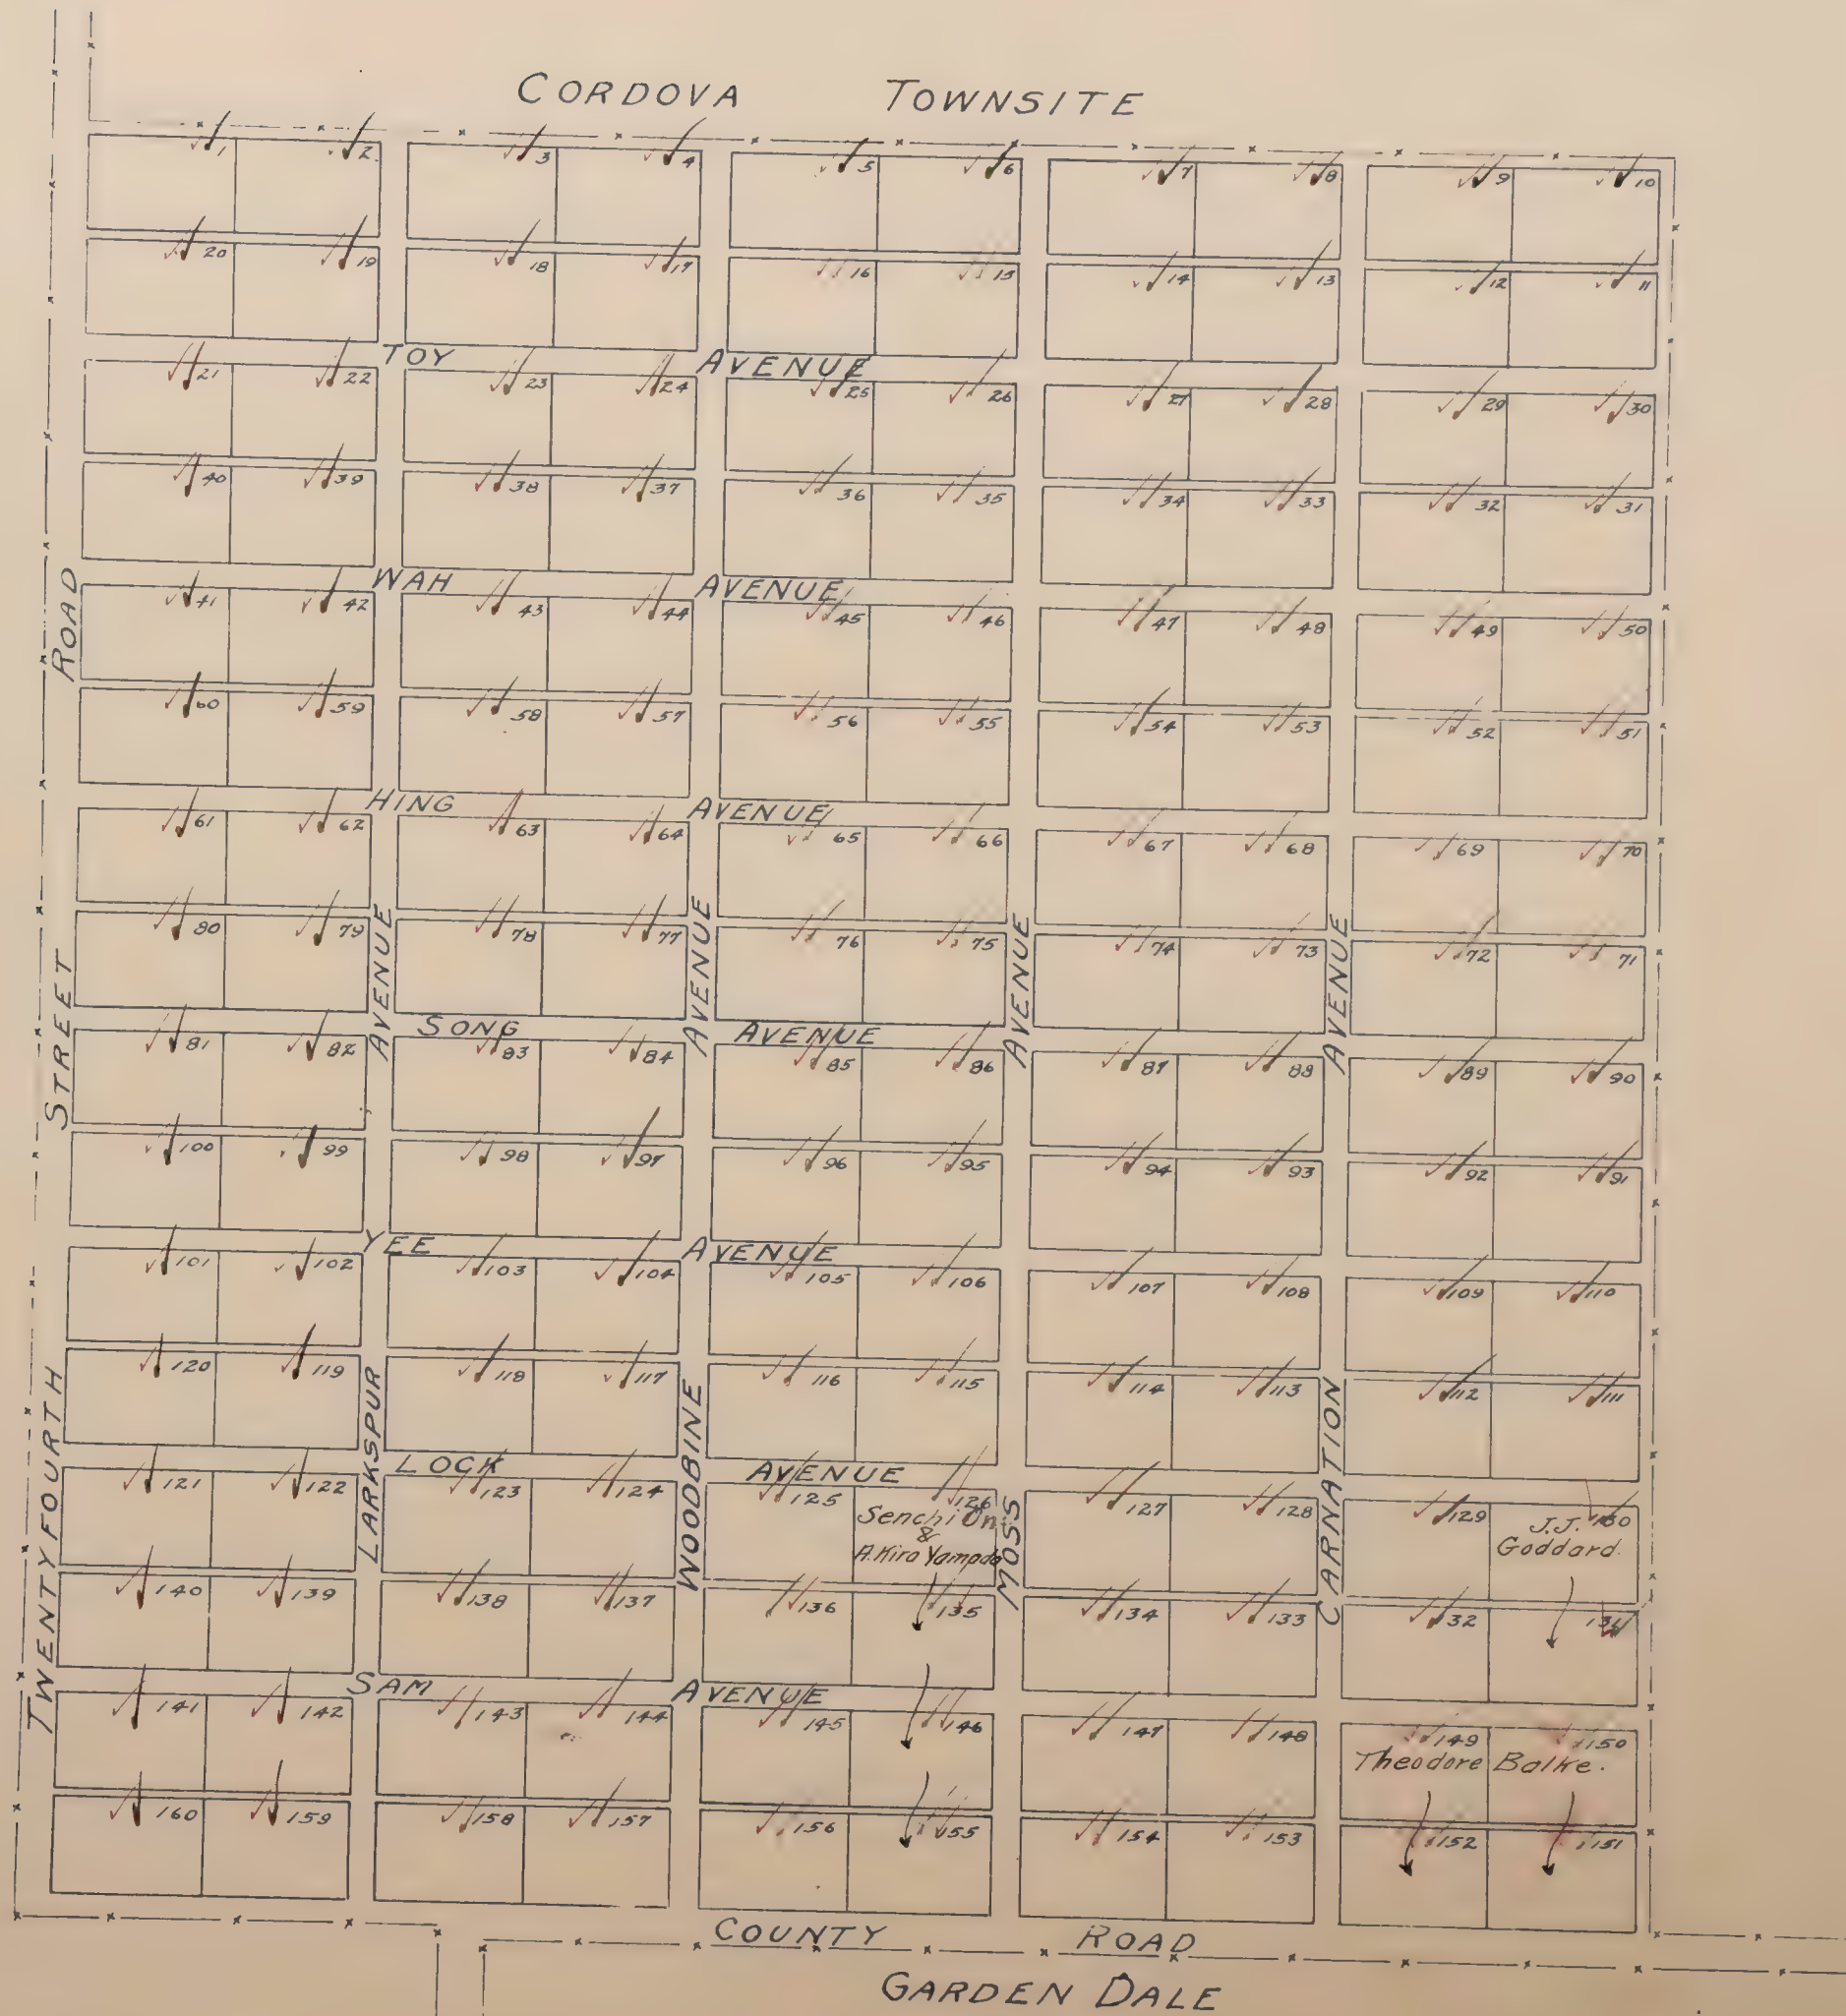 CORDOVA TOWNSITE
1 2 3 4 5 6 7 8 9 10
20 19 18 17 16 15 14 13 12 11
TOY AVENUE
21 22 23 24 25 26 27 28 29 30
40 39 38 37 36 35 34 33 32 31
WAH AVENUE
41 42 43 44 45 46 47 48 49 50
60 59 58 57 56 55 54 53 52 51
HING AVENUE
61 62 63 64 65 66 67 68 69 70
80 79 78 77 76 75 74 73 72 71
SONG AVENUE
81 82 83 84 85 86 87 88 89 90
100 99 98 97 96 95 94 93 92 91
YEE AVENUE
101 102 103 104 105 106 107 108 109 110
120 119 118 117 116 115 114 113 112 111
LOCK AVENUE
121 122 123 124 125 126 127 128 129 130
Senchi
&
A. Kira Yamada
J.J.
Goddard.
140 139 138 137 136 135 134 133 132 131
SAM AVENUE
141 142 143 144 145 146 147 148 149 150
Theodore Balke.
160 159 158 157 156 155 154 153 152 151
TWENTYFOURTH STREET ROAD
LARKSPUR AVENUE
WOODBINE AVENUE
MOSS AVENUE
CARNATION AVENUE
COUNTY ROAD
GARDEN DALE